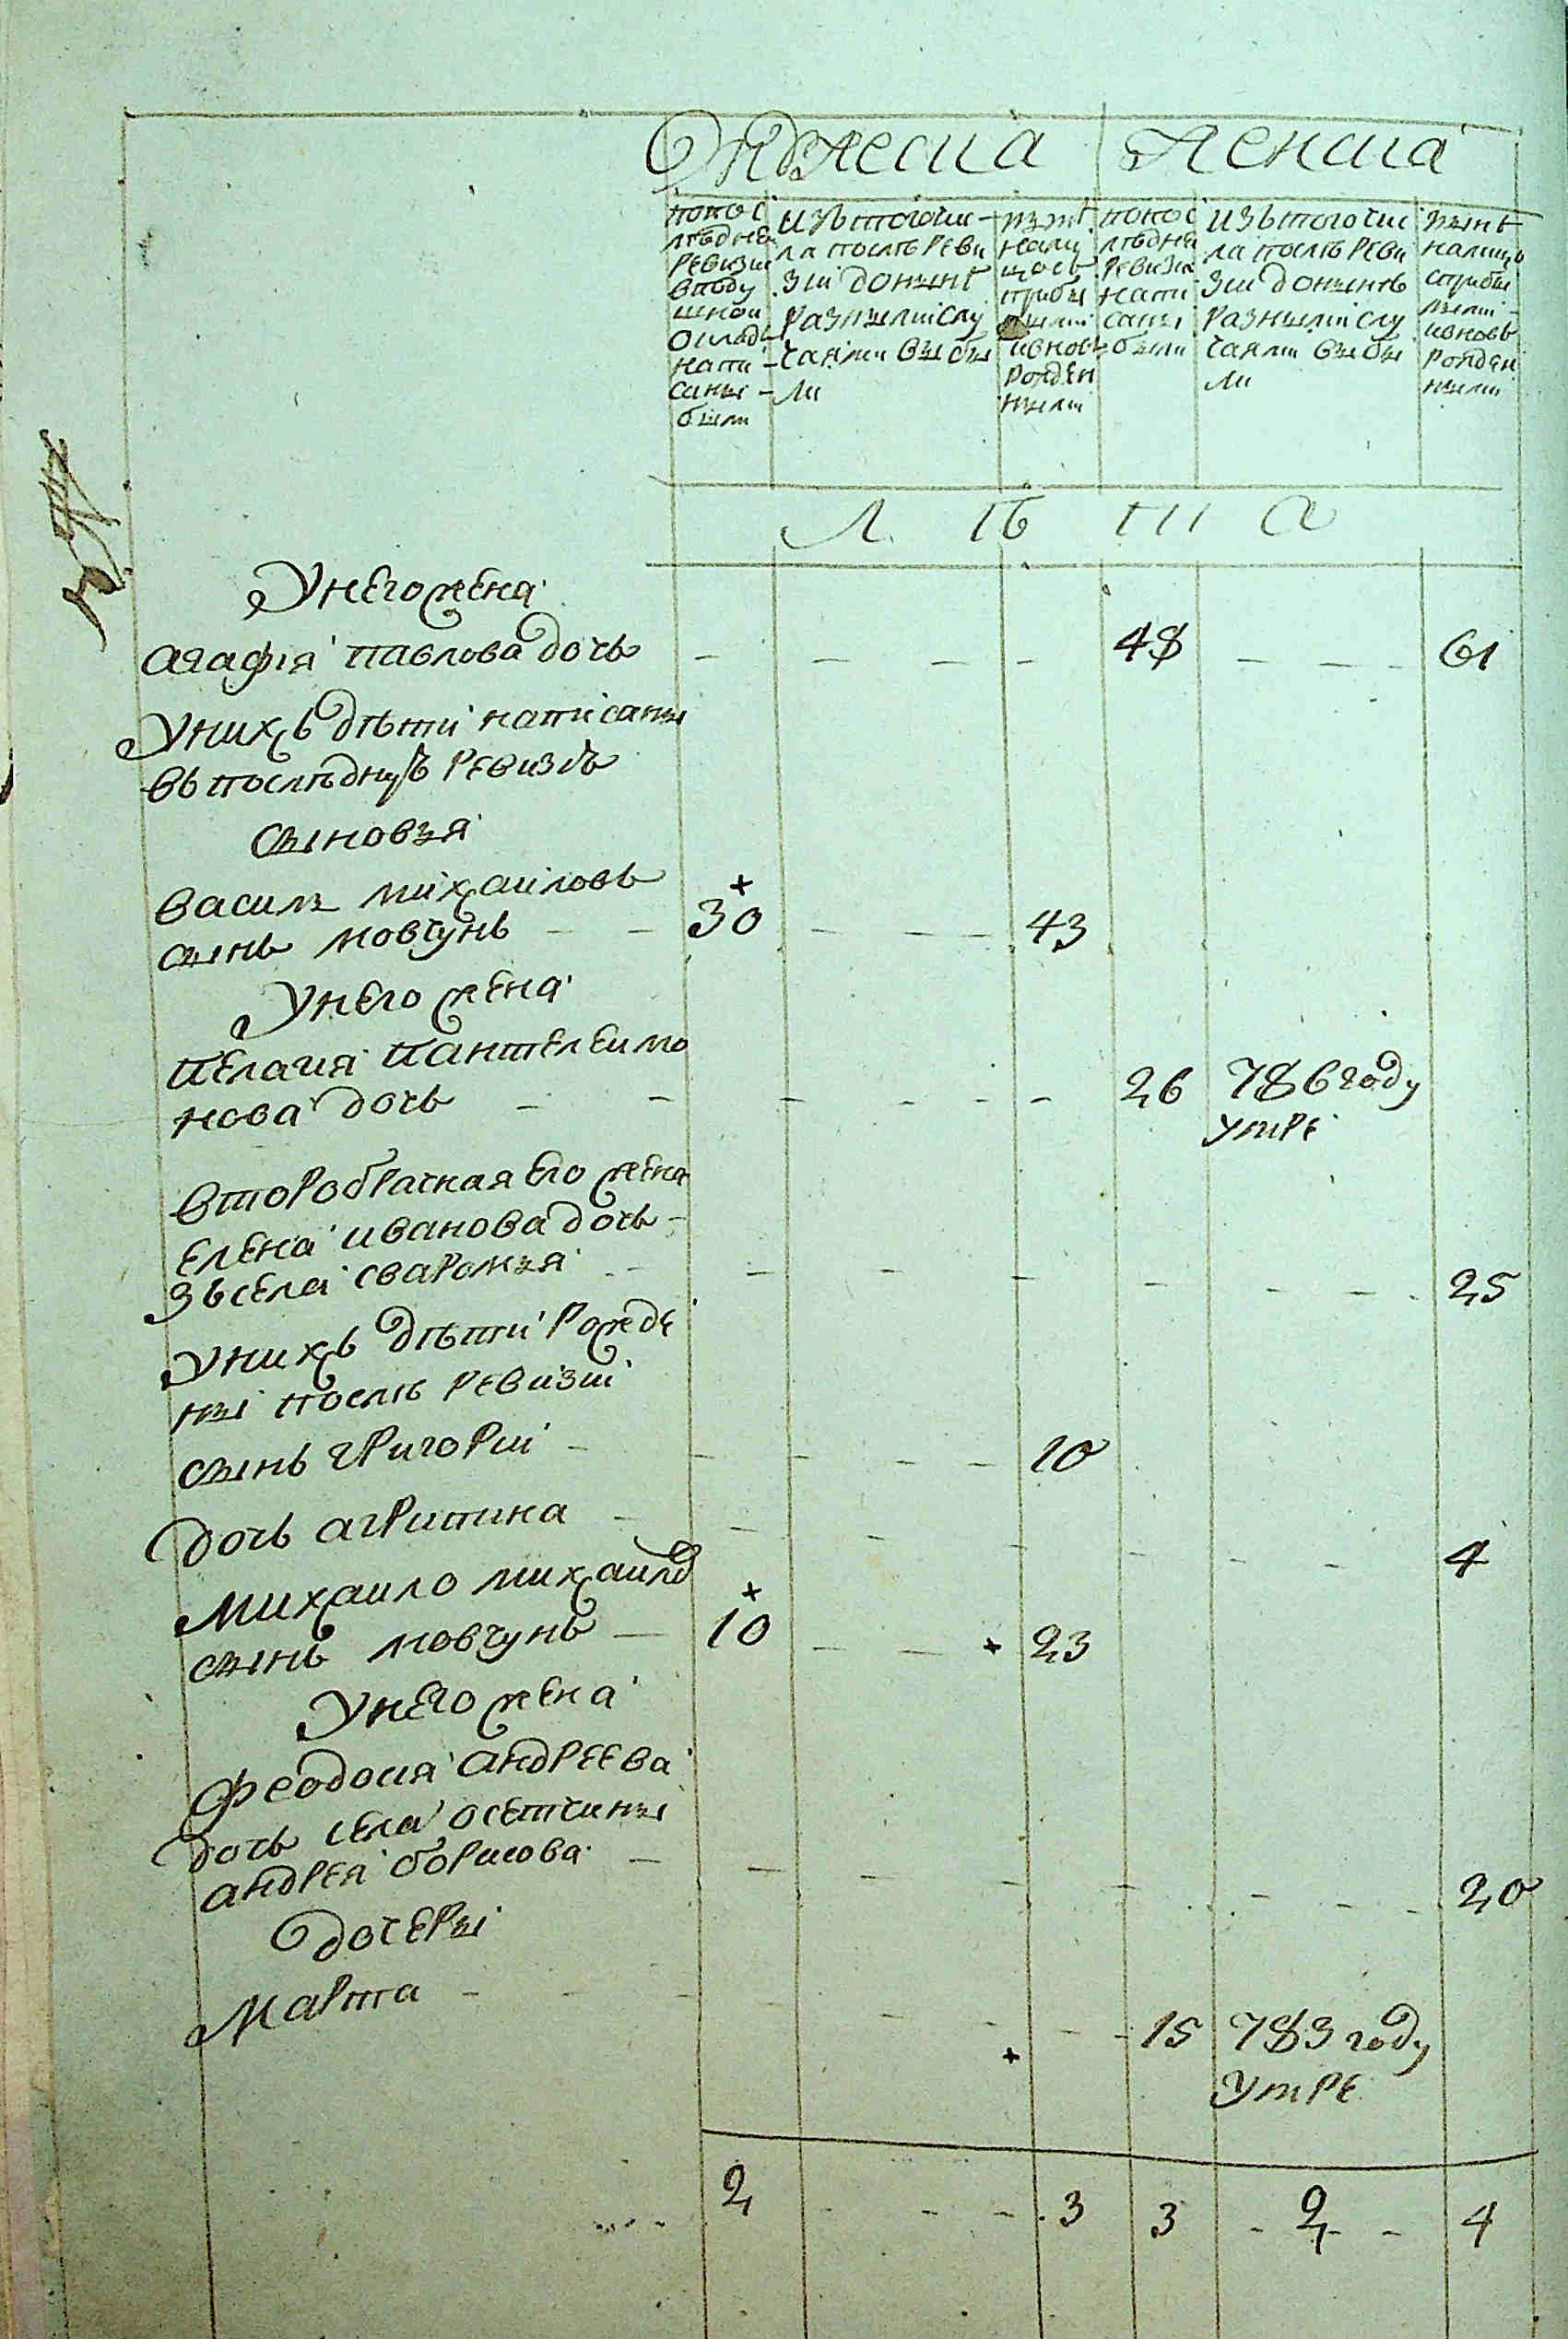 Мужеска Женска
попос
лѣдней
ревизіи
вподу
шной
окладъ
напи-
саны-
были
изътогочис-
ла послѣ реви
зіи донынѣ
разнымислу
чаями выбы
ли
нынѣ
нали
цось
прибы
лыми
ивновь
рожден
ными
попос
лѣдней
ревизіи
напи
саны
были
изътогочис
ла послѣ реви
зіи донынѣ
разнымислу
чаями выбы
ли
нынѣ
налицо
сприбы
лыми-
ивновь
рожден
ными
Л ѣ т а
Унего жена
Агафія Павлова дочь 48 61
Унихъ дѣти написаны
въ послѣднуѣ ревизѣ
сыновъя
Василъ Михаиловъ
сынъ Мовчунъ 30 43
Унего жена
Пелагия Пантелеимо
нова дочь 26 786 году
умре
второбрачная его жена
Елена Иванова дочь
зъ села Сваромъя 25
Унихъ дѣти рожде
ны послѣ ревизіи
сынъ Григорій 10
дочь Агрипина 4
Михаило Михаилов
сынъ Мовчунъ 10 23
Унего жена
Феодосия Андреева
дочь села Осетчины
Андрея Борисова 20
дочеры
Марта 15 783 году
умре
2 3 3 2 4